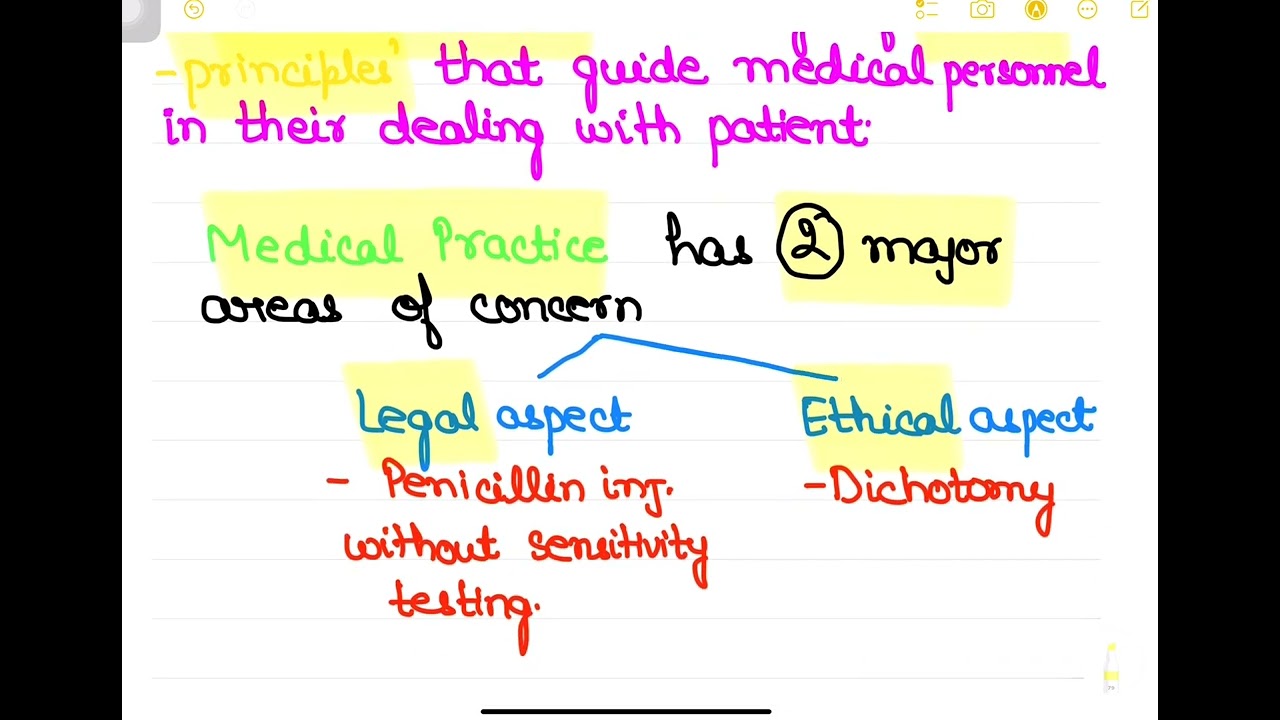 -principles' that guide medical personnel
in their dealing with patient.
Medical Practice has 2 major
areas of concern
Legal aspect Ethical aspect
- Penicillin inj. -Dichotomy
without sensitivity
testing.